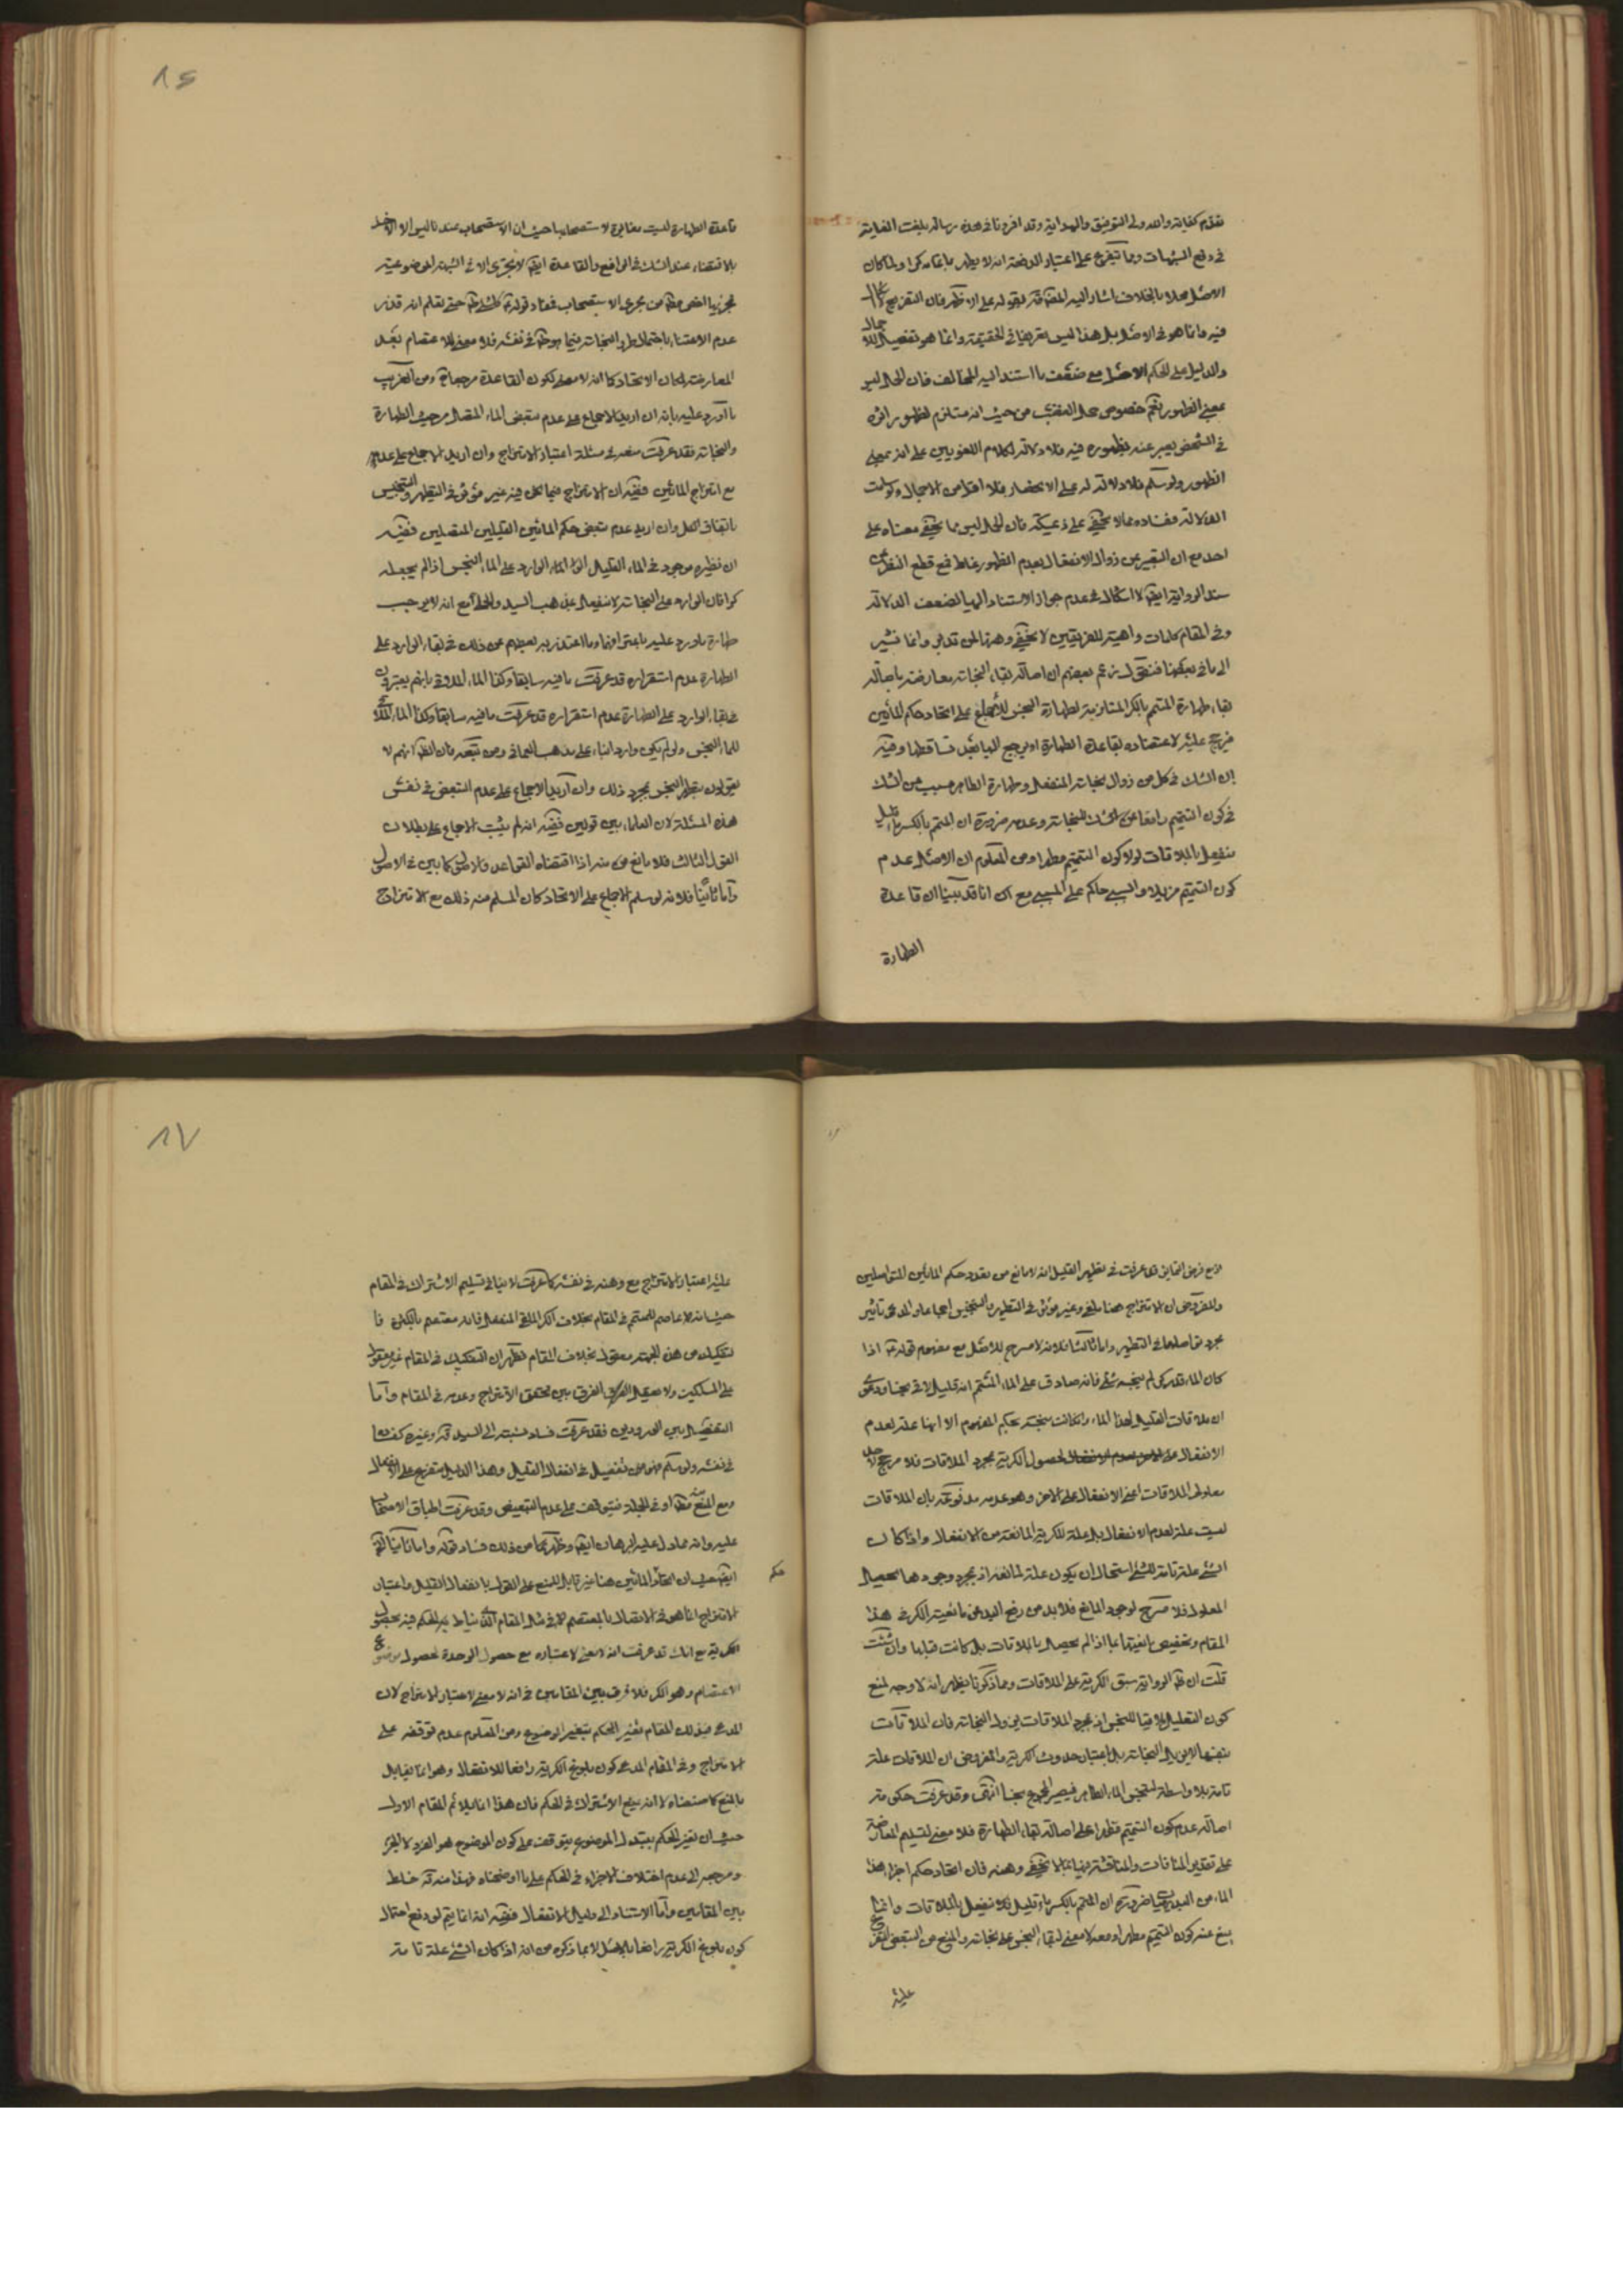 تقدم كفاية والله ولي التوفيق والهداية وقد افردنا في هذه رسالة بلغت الغاية
في دفع الشبهات ومما يتفرع على اعتبار الدفعة انه لا يطهر باتمامه كرا ولما كان
الاصل محلا للخلاف اشار اليه المصنف قده بقوله على الاظهر فان التفريع
فيه وانما هو في الاصل بل هذا ليس تفريعا في الحقيقة وانما هو تفصيل للاجمال
والدليل على الحكم الاصل مع ضعف ما استند اليه المخالف فان الحمل ليس
بمعنى الظهور نعم خصوص حمل الغضب من حيث انه مستلزم لظهور اثره
في الشخص يعبر عنه بظهوره فيه فلا دلالة لكلام اللغويين على انه بمعنى
الظهور ولو سلم فلا دلالة له على الانحصار فلا اقل من الاجمال ولو سلمت
الدلالة ففساده مما لا يخفى على ذي مسكة فان الحمل ليس مما يخفى معناه على
احد مع ان التعبير عن زوال الانفعال بعدم الظهور غلط فمع قطع النظر عن
سند الرواية ايضا لا اشكال في عدم جواز الاستناد اليها لضعف الدلالة
وفي المقام كلمات واهية للفريقين لا يخفى وهنها لمن تدبر وانما نشير
الى ما في بعضها فنقول زعم بعضهم ان اصالة بقاء النجاسة معارضة باصالة
بقاء طهارة المتمم بالكسر المستلزمة لطهارة النجس للاجماع على اتحاد حكم المائين
فيرجح عليه لاعتضاده بقاعدة الطهارة او يرجع اليها بعد تساقطهما وفيه
ان الشك في كل من زوال نجاسة المنفعل وطهارة الطاهر مسبب عن الشك
في كون التتميم رافعا للنجاسة وعدمه ضرورة ان المتمم بالكسر ماء قليل
ينفعل بالملاقات لولا كون التتميم مطهرا ومن المعلوم ان الاصل عدم
كون التتميم مزيلا والسببي حاكم على المسببي مع انا قد بينا ان قاعدة
الطهارة
٨٦
قاعدة الطهارة ليست مغايرة للاستصحاب حيث ان الاستصحاب عندنا ليس الا الاخذ
بالاقتضاء عند الشك في الرافع والقاعدة ايضا لا تجري الا في الشبهة الموضوعية
فمجريها اخص مطلقا من مجرى الاستصحاب فمفاد قوله ع كل شيء طاهر حتى تعلم انه قذر
عدم الاعتناء باحتمال طرو النجاسة فيما هو طاهر في نفسه فلا معنى للاعتصام بعد
المعارضة لمكان الاتحاد كما انه لا معنى لكون القاعدة مرجعا ومن الغريب
ما اورد عليه بانه ان اريد الاجماع على عدم تبعض الماء المتصل من حيث الطهارة
والنجاسة فقد عرفت منعه في مسئلة اعتبار الامتزاج وان اريد الاجماع على عدمه
مع امتزاج المائين ففيه ان الامتزاج فيما نحن فيه غير مؤثر في التطهير والتنجيس
باتفاق الكل وان اريد عدم تبعض حكم المائين القليلين المتصلين ففيه
ان نظيره موجود في الماء القليل الوارد على الماء النجس اذا لم يجعله
كرا فان الوارد على النجاسة لا ينفعل على مذهب السيد والحلي مع انه لا يوجب
طهارة ما ورد عليه باعترافهما وما اعتذر به بعضهم عن ذلك في بقاء الوارد على
الطهارة عدم استقراره قد عرفت ما فيه سابقا وكذا الماء
في بقاء الوارد على الطهارة عدم استقراره قد عرفت ما فيه سابقا وكذا الماء الملاقي
للماء النجس ولو لم يكن واردا بناء على مذهب العماني ومن تبعه فان الظ انهم لا
يقولون بتطهر النجس بمجرد ذلك وان اريد الاجماع على عدم التبعض في نفس
هذه المسئلة لان العلماء بين قولين ففيه انه لم يثبت الاجماع على بطلان
القول الثالث فلا مانع من منه اذا اقتضاه القواعد والاصول كما بين في الاصول
واما ثانيا فلانه لو سلم الاجماع على الاتحاد كان المسلم منه ذلك مع الامتزاج
ومع فرض التمايز فقد عرفت في تطهير القليل انه لا مانع من تعدد حكم المائين المتواصلين
والمفروض ان الامتزاج هنا ملغى وغير مؤثر في التطهير والتنجيس اجماعا والمدعى تاثير
مجرد تواصلهما في التطهير واما ثالثا فلانه لا مسرح للاصل مع مفهوم قوله ع اذا
كان الماء قدر كر لم ينجسه شيء فانه صادق على الماء المتمم انه قليل لاقى نجسا ودعوى
ان ملاقات القليل لهذا الماء وان كانت منجسة بحكم المفهوم الا انها علة لعدم
الانفعال لحصول الكرية بمجرد الملاقات فلا مرجح لاحد
معلولي الملاقات اعني الانفعال على الاخر وهو عدمه مدفوعة بان الملاقات
ليست علة لعدم الانفعال بل علة للكرية المانعة من الانفعال واذا كان
الشيء علة تامة لشيء استحال ان يكون علة لمانعه اذ بمجرد وجودها يحصل
المعلول فلا مسرح لوجود المانع فلابد من رفع اليد عن مانعية الكر في هذا
المقام وتخصيص مانعيتها بما اذا لم يحصل بالملاقات بل كانت قبلها وان شئت
قلت ان ظ الرواية سبق الكرية على الملاقات ومما ذكرنا يظهر انه لا وجه لمنع
كون القليل ملاقيا للنجس اذ بمجرد الملاقات يزول النجاسة فان الملاقات
بنفسها لا يزيل النجاسة بل باعتبار حدوث الكرية والمفروض ان الملاقات علة
تامة بلا واسطة لتنجس الماء الطاهر فيصير المجموع نجسا انتهى وقد عرفت حكومة
اصالة عدم كون التتميم مطهرا على اصالة بقاء الطهارة فلا معنى لتسليم المعارضة
على تقدير المنافات والمناقشة فيها بما لا يخفى وهنه فان اتحاد حكم اجزاء هذا
الماء من البديهيات ضرورة ان المتمم بالكسر ماء قليل ينفعل بالملاقات وانما
يمنع عنه كون التتميم مطهرا ومعه لا معنى لبقاء النجس على نجاسته والمنع من التبعض المتفرع
عليه
٨٧
عليه اعتبار الامتزاج مع وهنه في نفسه كما عرفت لا ينافي تسليم الاشتراك في المقام
حيث انه لا عاصم للمتمم في المقام بخلاف الكر الملقى المنفعل فانه معتصم بالكثرة فا
لتفكيك من هذه الجهة معقول بخلاف المقام فظهر ان التفكيك في المقام غير معقول
على المسلكين ولا يعقل الفرق بين تحقق الامتزاج وعدمه في المقام واما
التفصيل بين الورودين فقد عرفت فساد نسبته الى السيد قده وغيره كفساده
في نفسه ولو سلم فهو من تفصيل في انفعال القليل وهذا الدليل متفرع على الانفعال
ومع المنع مطلقا او في الجملة فيتوقف على عدم التبعيض وقد عرفت اطباق الاصحاب
عليه وانه مما دل عليه البرهان ايضا وظهر بما من ذلك فساد قوله واما ثانيا الخ
ايضا حيث ان اتحاد المائين هنا غير قابل للمنع على القول بانفعال القليل واعتبار
حكم
الامتزاج انما هو في الاتصال بالمعتصم لا في مثل المقام الذي يناط الحكم فيه بحصول
الكرية مع انك قد عرفت انه لا معنى لاعتباره مع حصول الوحدة لحصول موضوع
الاعتصام وهو الكر فلا فرق بين المقامين في انه لا معنى لاعتبار الامتزاج لان
المدعى في ذلك المقام تغير الحكم بتغير الموضوع ومن المعلوم عدم توقفه على
الامتزاج وفي المقام المدعى كون بلوغ الكرية رافعا للانفعال وهو انما يقابل
بالمنع كما صنعناه لا انه يمنع الاشتراك في الحكم فان هذا انما يلائم المقام الاول
حيث ان تغير الحكم بتبدل الموضوع يتوقف على كون الموضوع هو الفرد لا الجزء
ومرجعه الى عدم اختلاف الاجزاء في الحكم على ما اوضحناه فهذا منه قده خلط
بين المقامين واما الاستناد الى دليل الانفعال ففيه انه انما يتم لو دفع احتمال
كون بلوغ الكرية رافعا بالاصل لا بما ذكره من انه اذا كان الشيء علة تامة